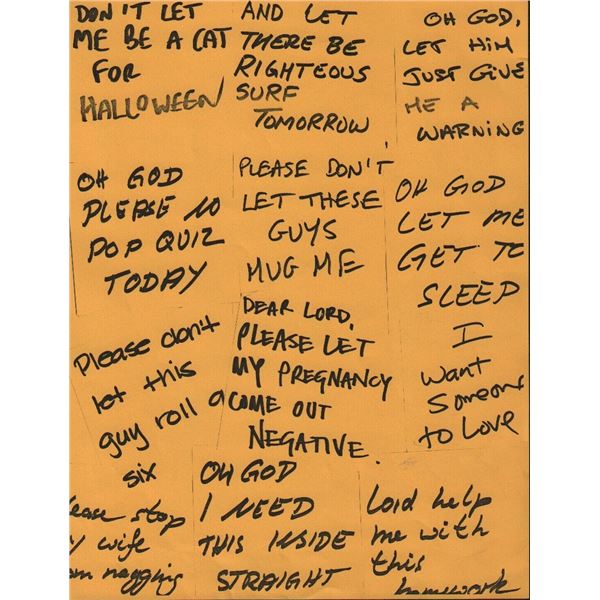 DON'T LET
ME BE A CAT
FOR
HALLOWEEN
AND LET
THERE BE
RIGHTEOUS
SURF
TOMORROW
OH GOD,
LET HIM
JUST GIVE
ME A
WARNING
OH GOD
PLEASE NO
POP QUIZ
TODAY
PLEASE DON'T
LET THESE
GUYS
MUG ME
OH GOD
LET ME
GET TO
SLEEP
Please don't
let this
guy roll a
six
DEAR LORD,
PLEASE LET
MY PREGNANCY
COME OUT
NEGATIVE.
I
want
Someone
to Love
lease stop
y wife
om nagging
OH GOD
I NEED
THIS INSIDE
STRAIGHT
Lord help
me with
this
homework